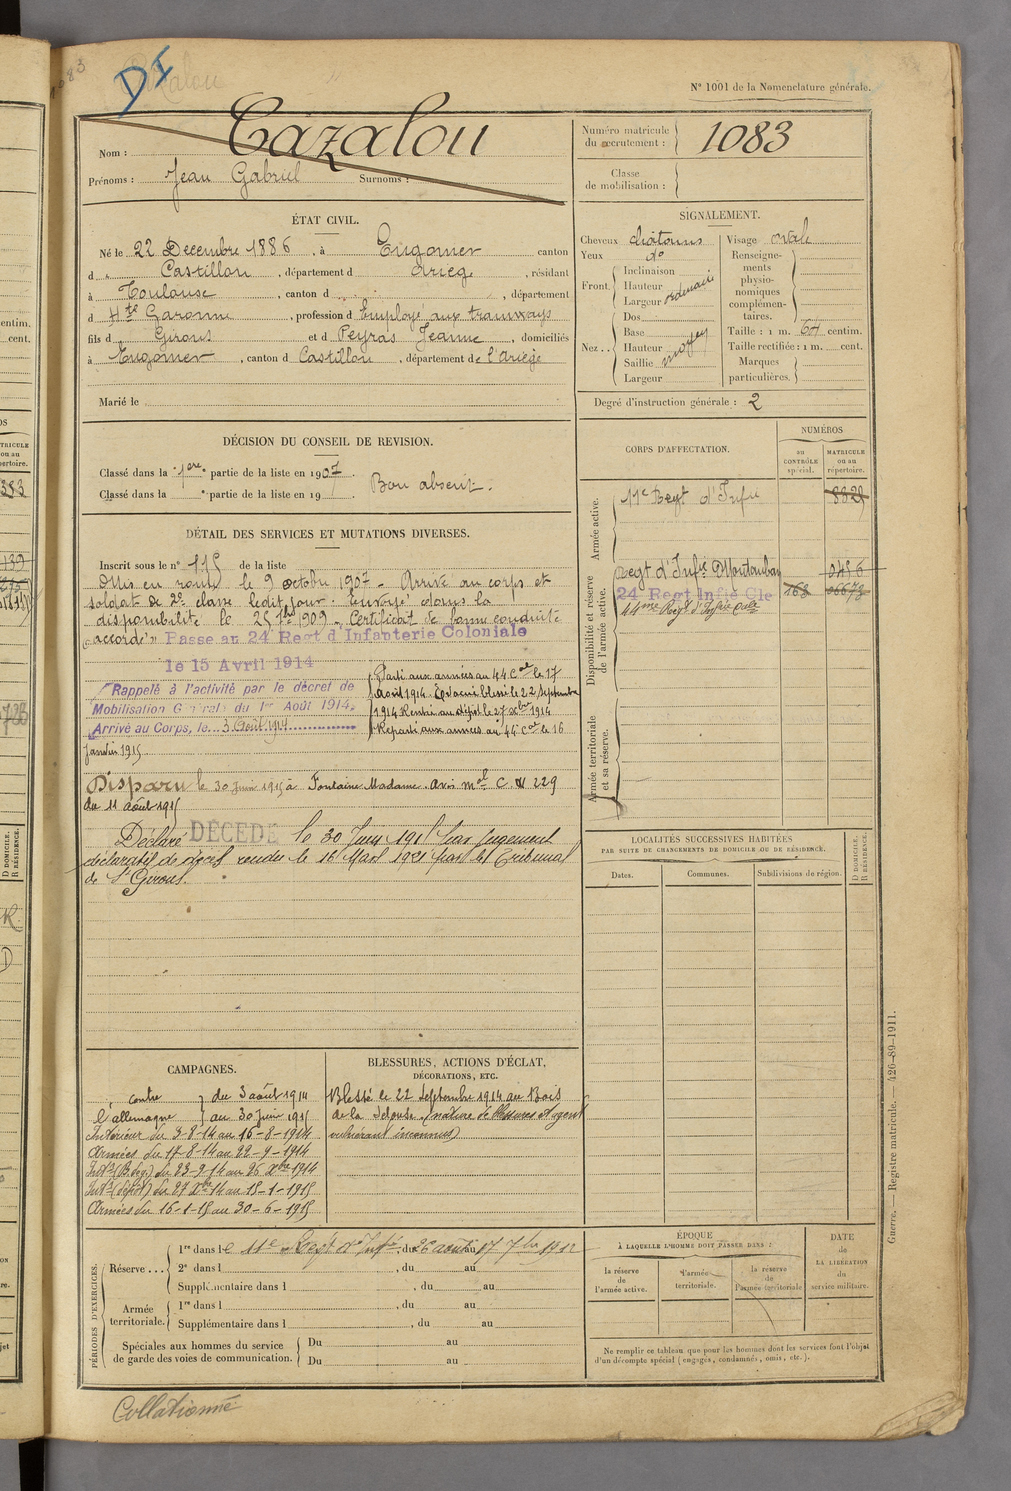 1083
DI
N° 1001 de la Nomenclature générale.
Nom : Cazalou
Prénoms : Jean Gabriel Surnoms :
Numéro matricule
du recrutement : 1083
Classe
de mobilisation :
ÉTAT CIVIL.
Né le 22 Decembre 1886, à Engomer canton
d Castillon, département d Ariège, résidant
à Toulouse, canton d , département
d Hte Garonne, profession d Employé aux tramways
fils d Girons et d Peyras Jeanne, domiciliés
à Engomer, canton d Castillon, département de l'Ariège
Marié le
SIGNALEMENT.
Cheveux chatains Visage ovale
Yeux do
Front. Inclinaison
Hauteur
Largeur ordinaire
Nez .. Dos
Base
Hauteur moyen
Saillie
Largeur
Renseigne-
ments
physio-
nomiques
complémen-
taires.
Taille : 1 m. 64 centim.
Taille rectifiée : 1 m. cent.
Marques
particulières.
Degré d'instruction générale : 2
DÉCISION DU CONSEIL DE REVISION.
Classé dans la 1ere partie de la liste en 1907
Classé dans la partie de la liste en 19 .
Bon absent.
CORPS D'AFFECTATION.
NUMÉROS
au
CONTRÔLE
spécial.
MATRICULE
ou au
répertoire.
Armée active.
11e Regt d'Infie 8829
Disponibilité et réserve
de l'armée active.
Regt d'Infie Montauban 0456
24 Regt Infie Cle 168
44me Regt d'Infie Cale
Armée territoriale
et sa réserve.
DÉTAIL DES SERVICES ET MUTATIONS DIVERSES.
Inscrit sous le n° 115 de la liste
Mis en route le 9 octobre 1907 - Arrivé au corps et
soldat de 2e classe ledit jour. Envoyé dans la
disponibilité le 25 7bre 1909. Certificat de bonne conduite
"accordé" Passé au 24 Regt d Infanterie Coloniale
le 15 Avril 1914
Rappelé à l'activité par le décret de
Mobilisation Générale du 1er Août 1914,
Arrivé au Corps, le 3 Août 1914
Parti aux armées au 44 Cal le 17
Août 1914. Evacué blessé le 22 Septembre
1914 Rentré au dépôt le 27 xbre 1914
Reparti aux armées au 44 Cal le 16
Janvier 1915
Disparu le 30 Juin 1915 à Fontaine Madame. Avis mel C N 229
du 11 Août 1915
Déclaré DÉCÉDÉ le 30 Juin 1915 par jugement
déclaratif de décès rendu le 16 Mars 1921 par le Tribunal
de St Girons.
LOCALITÉS SUCCESSIVES HABITÉES
PAR SUITE DE CHANGEMENTS DE DOMICILE OU DE RÉSIDENCE.
Dates.
Communes.
Subdivisions de région.
D DOMICILE.
R RÉSIDENCE.
CAMPAGNES.
contre du 3 août 1914
l'allemagne au 30 juin 1915
Intérieur du 3-8-14 au 16-8-1914
Armées du 17-8-14 au 22-9-1914
Intr (B. ev.) du 23-9-14 au 26 xbre 1914
Intr (dépôt) du 27 xbre 14 au 15-1-1915
Armées du 16-1-15 au 30-6-1915
BLESSURES, ACTIONS D'ÉCLAT,
DÉCORATIONS, ETC.
Blessé le 22 Septembre 1914 au Bois
de la (nature de blessures et agent
vulnérant inconnus)
PÉRIODES D'EXERCICES.
Réserve ... 1re dans le 11e Regt d'Infie, du 26 août au 17 7bre 1912
2e dans l , du au
Supplémentaire dans l , du au
Armée
territoriale. 1re dans l , du au
Supplémentaire dans l , du au
Spéciales aux hommes du service
de garde des voies de communication. Du au
Du au
ÉPOQUE
À LAQUELLE L'HOMME DOIT PASSER DANS :
la réserve
de
l'armée active.
l'armée
territoriale.
la réserve
de
l'armée territoriale
DATE
de
LA LIBÉRATION
du
service militaire.
Ne remplir ce tableau que pour les hommes dont les services font l'objet
d'un décompte spécial (engagés, condamnés, omis, etc.).
Guerre. — Registre matricule. — 426-89-1911.
Collationné